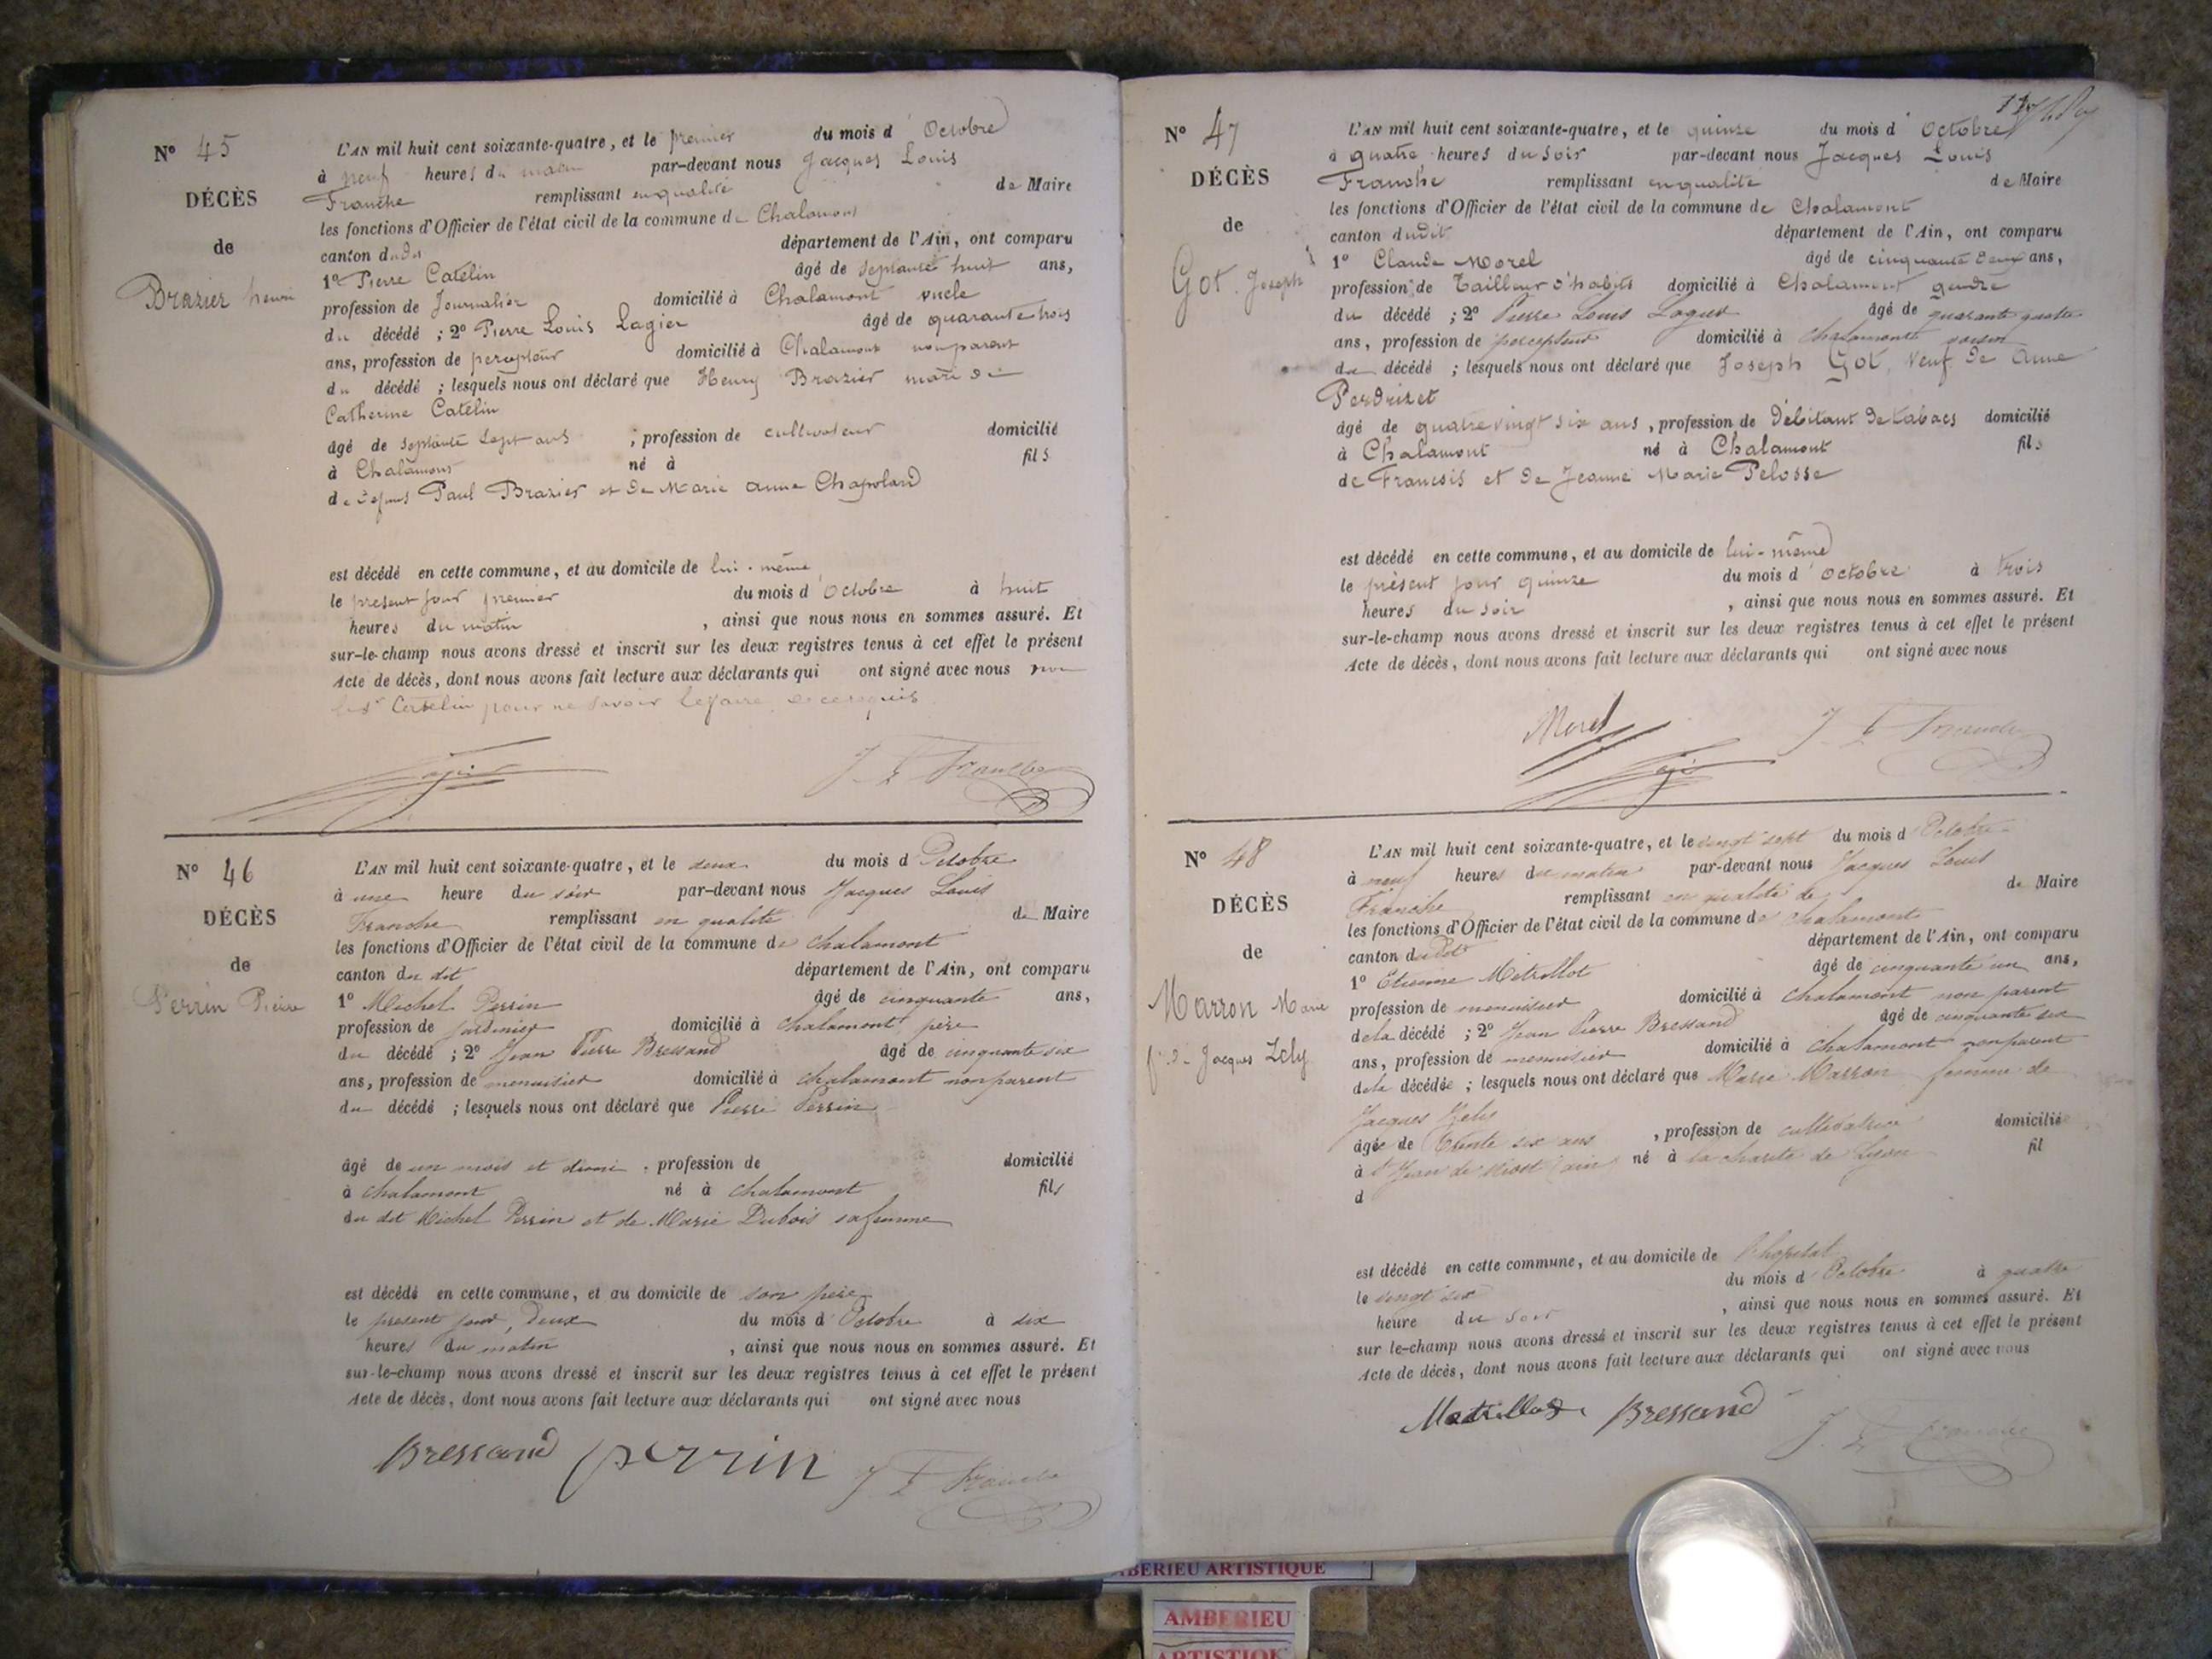 N° 45
DÉCÈS
de
Brazier henri
L'AN mil huit cent soixante-quatre, et le premier du mois d'Octobre
à neuf heures du matin par-devant nous Jacques Louis
Franche remplissant en qualité de Maire
les fonctions d'Officier de l'état civil de la commune de Chalamont
canton dudit département de l'Ain, ont comparu
1° Pierre Catelin âgé de septante huit ans,
profession de Journalier domicilié à Chalamont oncle
du décédé ; 2° Pierre Louis Lagier âgé de quarante trois
ans, profession de percepteur domicilié à Chalamont non parent
du décédé ; lesquels nous ont déclaré que Henry Brazier mari de
Catherine Catelin
âgé de septante sept ans ; profession de cultivateur domicilié
à Chalamont né à fils
de defunt Paul Brazier et de Marie Anne Chapoland
est décédé en cette commune, et au domicile de lui-même
le présent jour premier du mois d'Octobre à huit
heures du matin , ainsi que nous nous en sommes assuré. Et
sur-le-champ nous avons dressé et inscrit sur les deux registres tenus à cet effet le présent
Acte de décès, dont nous avons fait lecture aux déclarants qui ont signé avec nous non
pour ne savoir le faire de ce requis
J L Franche
N° 46
DÉCÈS
de
Perrin Pierre
L'AN mil huit cent soixante-quatre, et le deux du mois d'Octobre
à une heure du soir par-devant nous Jacques Louis
Franche remplissant en qualité de Maire
les fonctions d'Officier de l'état civil de la commune de Chalamont
canton du dit département de l'Ain, ont comparu
1° Michel Perrin âgé de cinquante ans,
profession de jardinier domicilié à Chalamont père
du décédé ; 2° Jean Pierre Bressand âgé de cinquante six
ans, profession de menuisier domicilié à Chalamont non parent
du décédé ; lesquels nous ont déclaré que Pierre Perrin
âgé de un mois et demi , profession de domicilié
à Chalamont né à Chalamont fils
du dit Michel Perrin et de Marie Dubois sa femme
est décédé en cette commune, et au domicile de son père
le présent jour, deux du mois d'Octobre à six
heures du matin , ainsi que nous nous en sommes assuré. Et
sur-le-champ nous avons dressé et inscrit sur les deux registres tenus à cet effet le présent
Acte de décès, dont nous avons fait lecture aux déclarants qui ont signé avec nous
Bressand Perrin J L Franche
N° 47
DÉCÈS
de
Got Joseph
L'AN mil huit cent soixante-quatre, et le quinze du mois d'Octobre
à quatre heures du soir par-devant nous Jacques Louis
Franche remplissant en qualité de Maire
les fonctions d'Officier de l'état civil de la commune de Chalamont
canton dudit département de l'Ain, ont comparu
1° Claude Morel âgé de cinquante deux ans,
profession de Tailleur d'habits domicilié à Chalamont gendre
du décédé ; 2° Pierre Louis Lagier âgé de quarante quatre
ans, profession de percepteur domicilié à Chalamont voisin
du décédé ; lesquels nous ont déclaré que Joseph Got, veuf de Anne
Perdrizet
âgé de quatre vingt six ans, profession de Débitant de tabacs domicilié
à Chalamont né à Chalamont fils
de Francois et de Jeanne Marie Pelosse
est décédé en cette commune, et au domicile de lui-même
le présent jour quinze du mois d'Octobre à trois
heures du soir , ainsi que nous nous en sommes assuré. Et
sur-le-champ nous avons dressé et inscrit sur les deux registres tenus à cet effet le présent
Acte de décès, dont nous avons fait lecture aux déclarants qui ont signé avec nous
Morel J L Franche
N° 48
DÉCÈS
de
Marron Marie
f. de Jacques Zely
L'AN mil huit cent soixante-quatre, et le vingt sept du mois d'Octobre
à neuf heures du matin par-devant nous Jacques Louis
Franche remplissant en qualité de de Maire
les fonctions d'Officier de l'état civil de la commune de Chalamont
canton dudit département de l'Ain, ont comparu
1° Etienne Metrillot âgé de cinquante un ans,
profession de menuisier domicilié à Chalamont non parent
de la décédé ; 2° Jean Pierre Bressand âgé de cinquante six
ans, profession de menuisier domicilié à Chalamont non parent
de la décédée ; lesquels nous ont déclaré que Marie Marron femme de
Jacques Zely
âgée de trente six ans , profession de cultivatrice domiciliée
à St Jean de Niost (ain) né à la charité de Lyon fil
d
est décédé en cette commune, et au domicile de l'hopital
le vingt six du mois d'Octobre à quatre
heure du soir , ainsi que nous nous en sommes assuré. Et
sur le-champ nous avons dressé et inscrit sur les deux registres tenus à cet effet le présent
Acte de décès, dont nous avons fait lecture aux déclarants qui ont signé avec nous
Bressand J. L Franche
BERIEU ARTISTIQUE
AMBERIEU
ARTISTIQUE